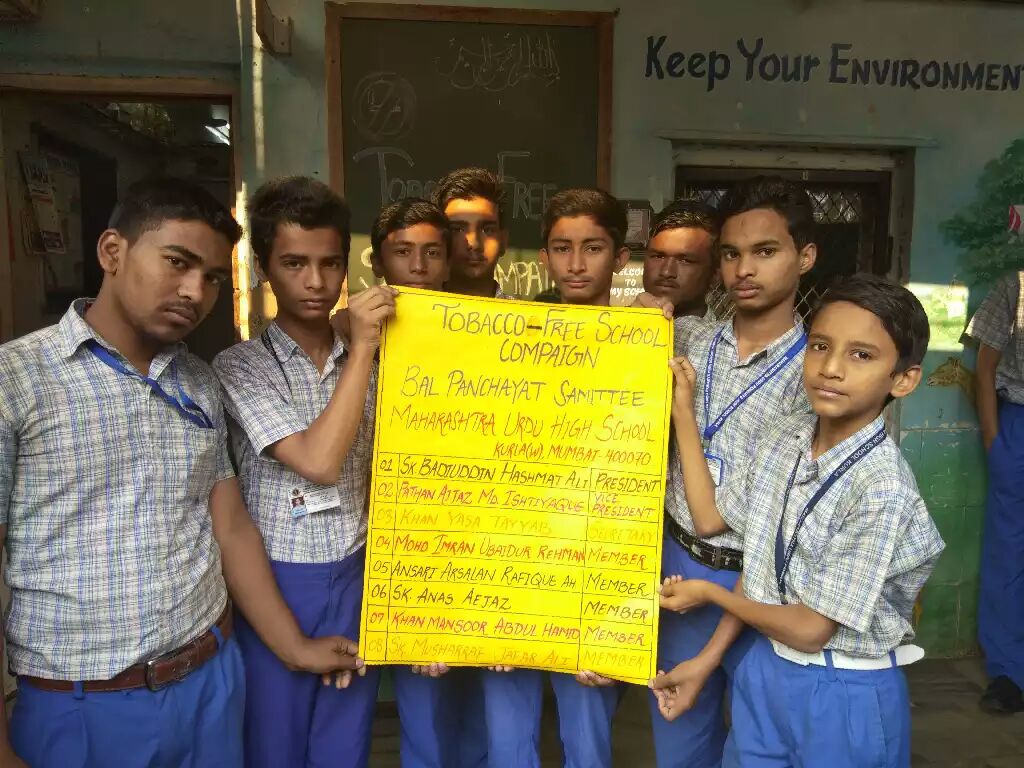 Keep Your ENVIRONMENT
TOBACCO FREE
WELCOME
TO
MY SCHO
TOBACCO-FREE SCHOOL
COMPAIGN
BAL PANCHAYAT SAMITTEE
MAHARASHTRA URDU HIGH SCHOOL
KURLA(W), MUMBAI 400070
01 SK. BADIUDDIN HASHMAT ALI PRESIDENT
02 PATHAN AIJAZ MD. ISHTIYAQUE VICE PRESIDENT
03 KHAN YASA TAYYAB SECRETARY
04 MOHD IMRAN UBAIDUR REHMAN MEMBER
05 ANSARI ARSALAN RAFIQUE AH MEMBER
06 SK. ANAS AEJAZ MEMBER
07 KHAN MANSOOR ABDUL HAMID MEMBER
08 SK. MUSHARRAF JAFAR ALI MEMBER